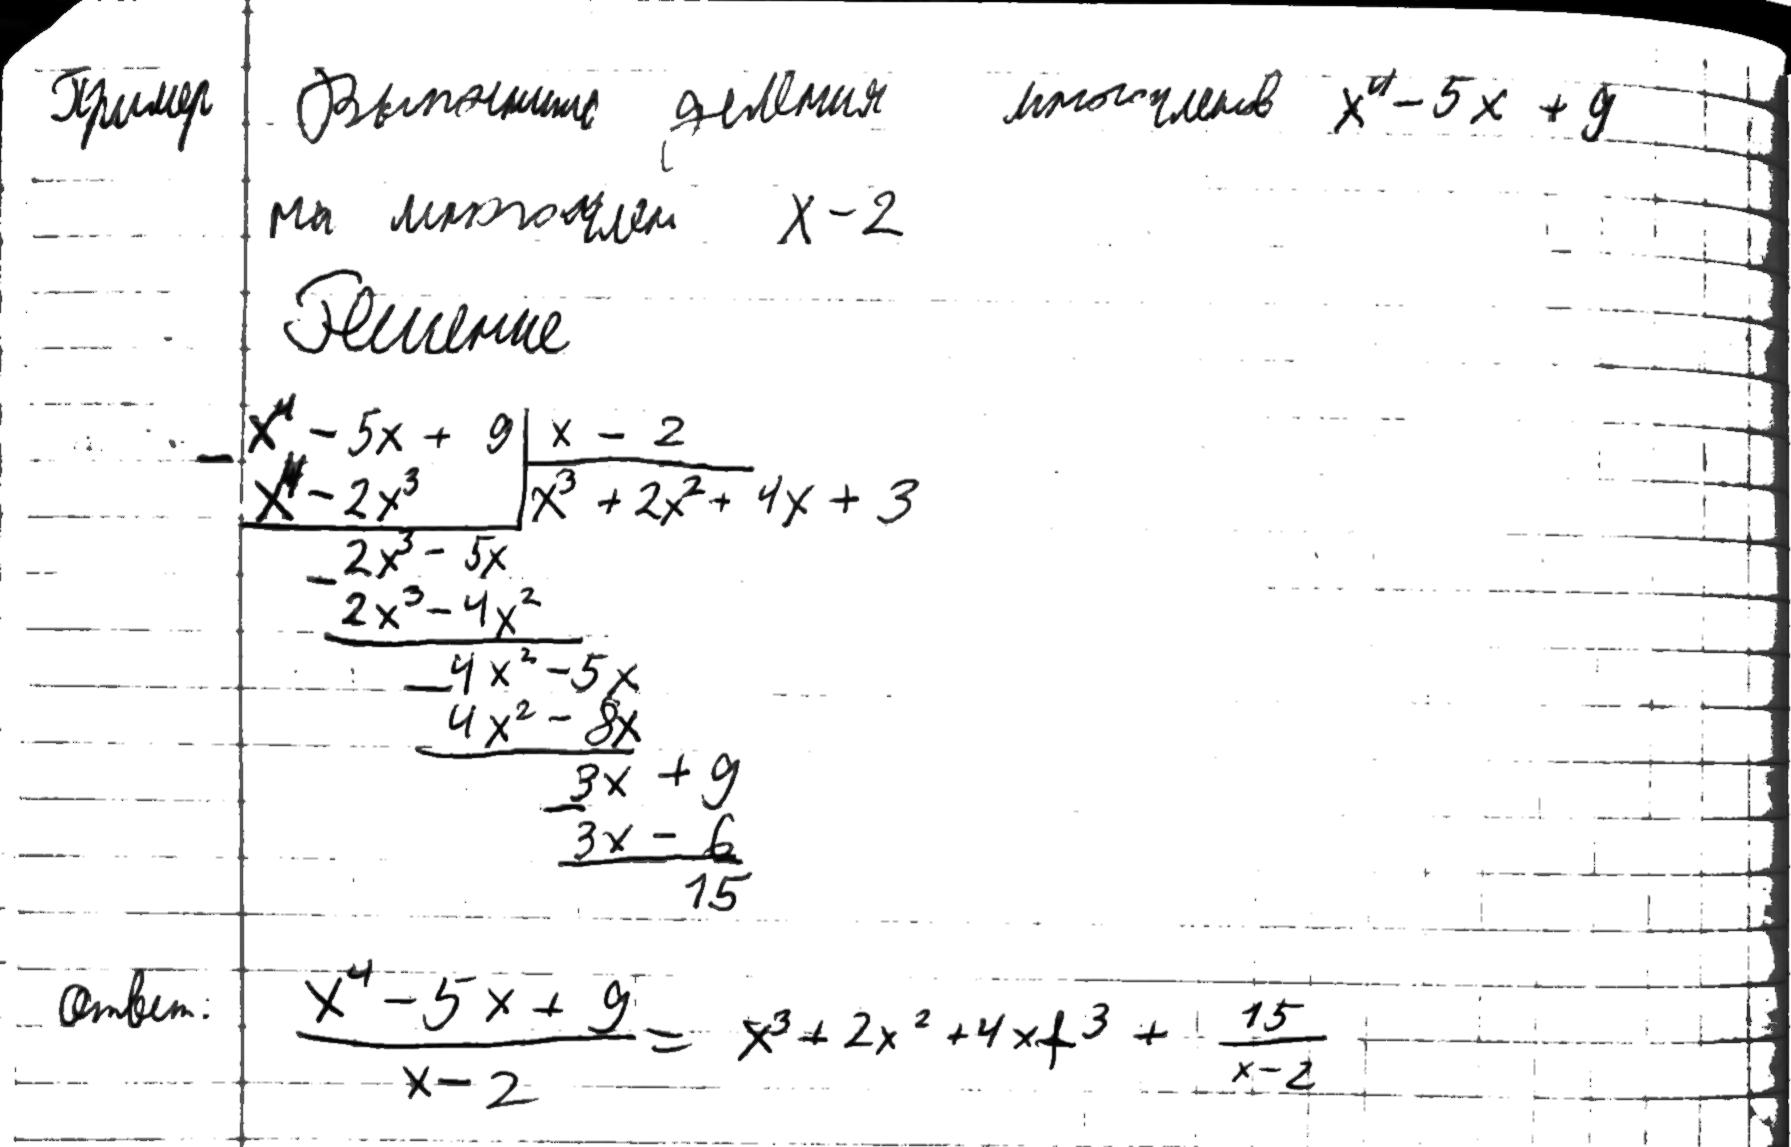 Пример Выполните деления многочленов x⁴ - 5x + 9
на многочлен x - 2
Решение
x⁴ - 5x + 9 | x - 2
- x⁴ - 2x³ | x³ + 2x² + 4x + 3
2x³ - 5x
- 2x³ - 4x²
4x² - 5x
- 4x² - 8x
3x + 9
- 3x - 6
15
Ответ: (x⁴ - 5x + 9)/(x - 2) = x³ + 2x² + 4x + 3 + 15/(x - 2)